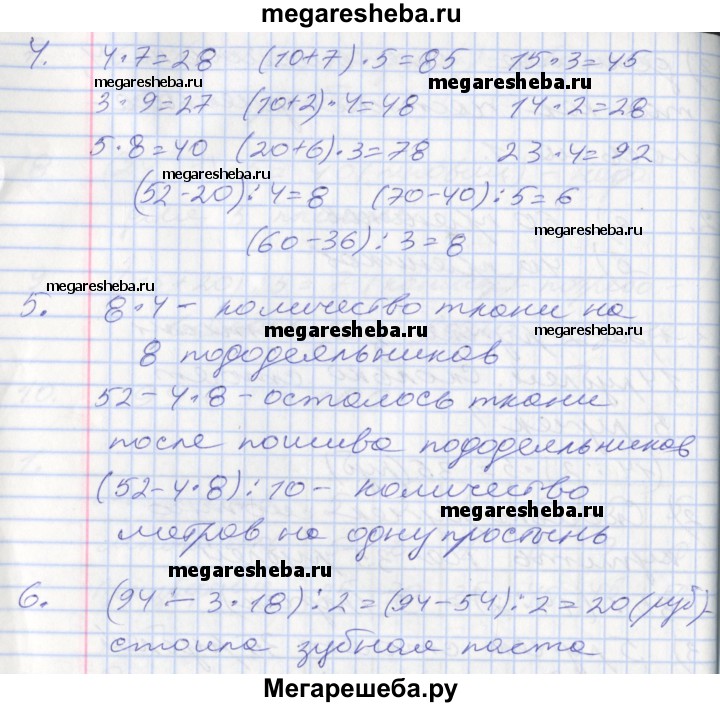 megaresheba.ru
4. 4·7=28 (10+7)·5=85 15·3=45
megaresheba.ru megaresheba.ru
3·9=27 (10+2)·4=48 14·2=28
5·8=40 (20+6)·3=78 23·4=92
megaresheba.ru
(52-20):4=8 (70-40):5=6
megaresheba.ru
(60-36):3=8
megaresheba.ru
5. 8·4 - количество ткани на
megaresheba.ru megaresheba.ru
8 пододеяльников
52-4·8 - осталось ткани
после пошива пододеяльников
(52-4·8):10 - количество
megaresheba.ru
метров на одну простынь
megaresheba.ru
6. (94-3·18):2=(94-54):2=20(руб)-
стоила зубная паста
Мегарешеба.ру